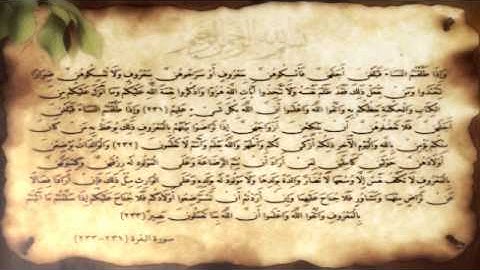 بسم الله الرحمن الرحيم
وَإِذَا طَلَّقْتُمُ النِّسَاء فَبَلَغْنَ أَجَلَهُنَّ فَأَمْسِكُوهُنَّ بِمَعْرُوفٍ أَوْ سَرِّحُوهُنَّ بِمَعْرُوفٍ وَلاَ تُمْسِكُوهُنَّ ضِرَارًا
لَّتَعْتَدُواْ وَمَن يَفْعَلْ ذَلِكَ فَقَدْ ظَلَمَ نَفْسَهُ وَلاَ تَتَّخِذُوَاْ آيَاتِ اللّهِ هُزُوًا وَاذْكُرُواْ نِعْمَتَ اللّهِ عَلَيْكُمْ وَمَا أَنزَلَ عَلَيْكُمْ مِّنَ
الْكِتَابِ وَالْحِكْمَةِ يَعِظُكُم بِهِ وَاتَّقُواْ اللّهَ وَاعْلَمُواْ أَنَّ اللّهَ بِكُلِّ شَيْءٍ عَلِيمٌ (٢٣١) وَإِذَا طَلَّقْتُمُ النِّسَاء فَبَلَغْنَ
أَجَلَهُنَّ فَلاَ تَعْضُلُوهُنَّ أَن يَنكِحْنَ أَزْوَاجَهُنَّ إِذَا تَرَاضَوْاْ بَيْنَهُم بِالْمَعْرُوفِ ذَلِكَ يُوعَظُ بِهِ مَن كَانَ
مِنكُمْ يُؤْمِنُ بِاللّهِ وَالْيَوْمِ الآخِرِ ذَلِكُمْ أَزْكَى لَكُمْ وَأَطْهَرُ وَاللّهُ يَعْلَمُ وَأَنتُمْ لاَ تَعْلَمُونَ (٢٣٢) وَالْوَالِدَاتُ يُرْضِعْنَ
أَوْلاَدَهُنَّ حَوْلَيْنِ كَامِلَيْنِ لِمَنْ أَرَادَ أَن يُتِمَّ الرَّضَاعَةَ وَعلَى الْمَوْلُودِ لَهُ رِزْقُهُنَّ وَكِسْوَتُهُنَّ
بِالْمَعْرُوفِ لاَ تُكَلَّفُ نَفْسٌ إِلاَّ وُسْعَهَا لاَ تُضَآرَّ وَالِدَةٌ بِوَلَدِهَا وَلاَ مَوْلُودٌ لَّهُ بِوَلَدِهِ وَعَلَى الْوَارِثِ مِثْلُ ذَلِكَ فَإِنْ أَرَادَا فِصَالاً
عَن تَرَاضٍ مِّنْهُمَا وَتَشَاوُرٍ فَلاَ جُنَاحَ عَلَيْهِمَا وَإِنْ أَرَدتُّمْ أَن تَسْتَرْضِعُواْ أَوْلاَدَكُمْ فَلاَ جُنَاحَ عَلَيْكُمْ إِذَا سَلَّمْتُم مَّآ آتَيْتُم
بِالْمَعْرُوفِ وَاتَّقُواْ اللّهَ وَاعْلَمُواْ أَنَّ اللّهَ بِمَا تَعْمَلُونَ بَصِيرٌ (٢٣٣)
سورة البقرة (٢٣١-٢٣٣)